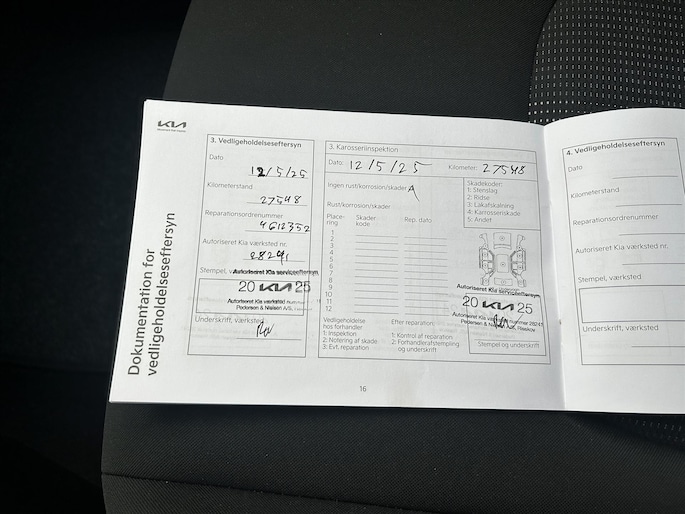 KIA
Dokumentation for
vedligeholdelseseftersyn
3. Vedligeholdelseseftersyn
Dato
12/5/25
Kilometerstand
27548
Reparationsordrenummer
4612352
Autoriseret Kia værksted nr.
28241
Stempel,
Autoriseret Kia serviceeftersyn
20 KIA 25
Autoriseret Kia værksted nummer
Pedersen & Nielsen A/S,
Underskrift, værksted
3. Karosseriinspektion
Dato: 12/5/25 Kilometer: 27548
Ingen rust/korrosion/skader
Rust/korrosion/skader:
Place-
ring
Skades-
kode
Rep. dato
1
2
3
4
5
6
7
8
9
10
11
12
Skadekoder:
1: Stenslag
2: Ridse
3: Lakafskalning
4: Karosseriskade
5: Andet
Autoriseret Kia serviceeftersyn
20 KIA 25
Autoriseret Kia værksted nummer 28241
Pedersen &
Stempel og underskrift
Vedligeholdelse
hos forhandler
1: Inspektion
2: Notering af skade
3: Evt. reparation
Efter reparation:
1: Kontrol af reparation
2: Forhandlerafstempling
og underskrift
16
4. Vedligeholdelseseftersyn
Dato
Kilometerstand
Reparationsordrenummer
Autoriseret Kia værksted nr.
Stempel, værksted
Underskrift, værksted